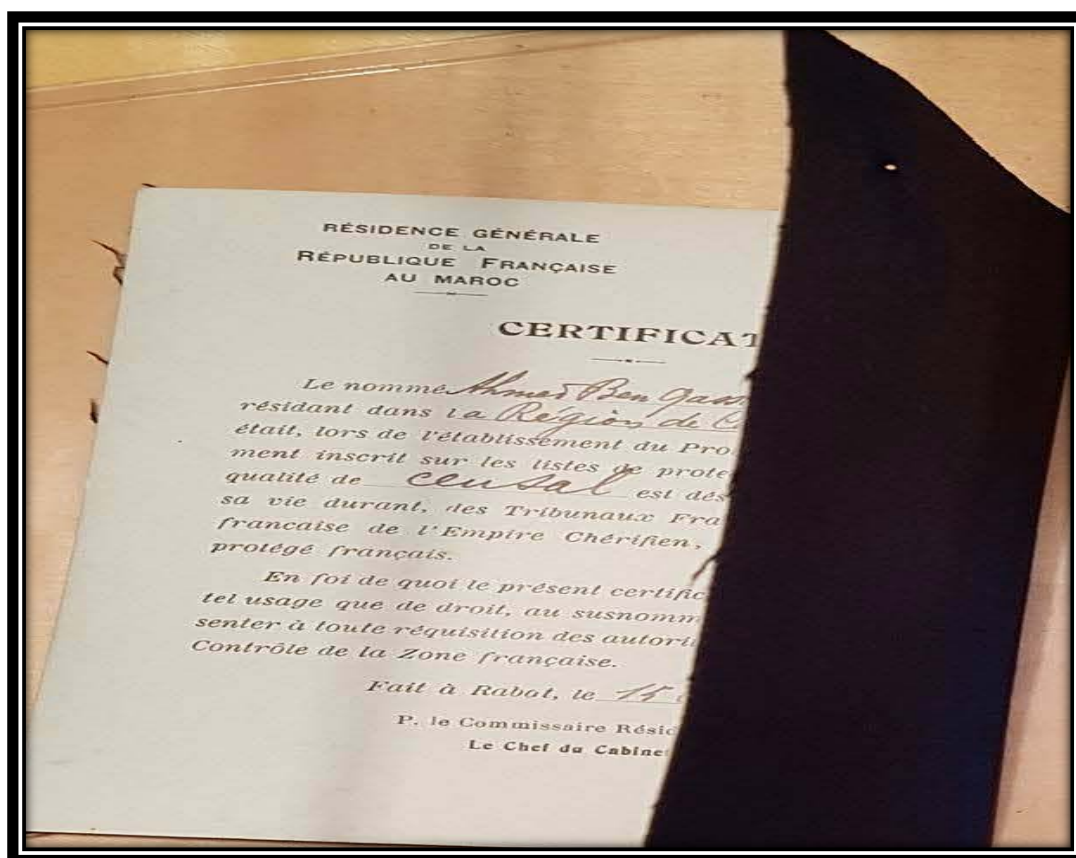 RÉSIDENCE GÉNÉRALE
DE LA
RÉPUBLIQUE FRANÇAISE
AU MAROC
CERTIFICAT
Le nommé Ahmed Ben
résidant dans la Région de
était, lors de l'établissement du Pro
ment inscrit sur les listes de prote
qualité de censal est dés
sa vie durant, des Tribunaux Fra
francaise de l'Empire Chérifien,
protégé français.
En foi de quoi le présent certific
tel usage que de droit, au susnomm
senter à toute réquisition des autori
Contrôle de la Zone française.
Fait à Rabat, le 15
P. le Commissaire Résid
Le Chef du Cabinet